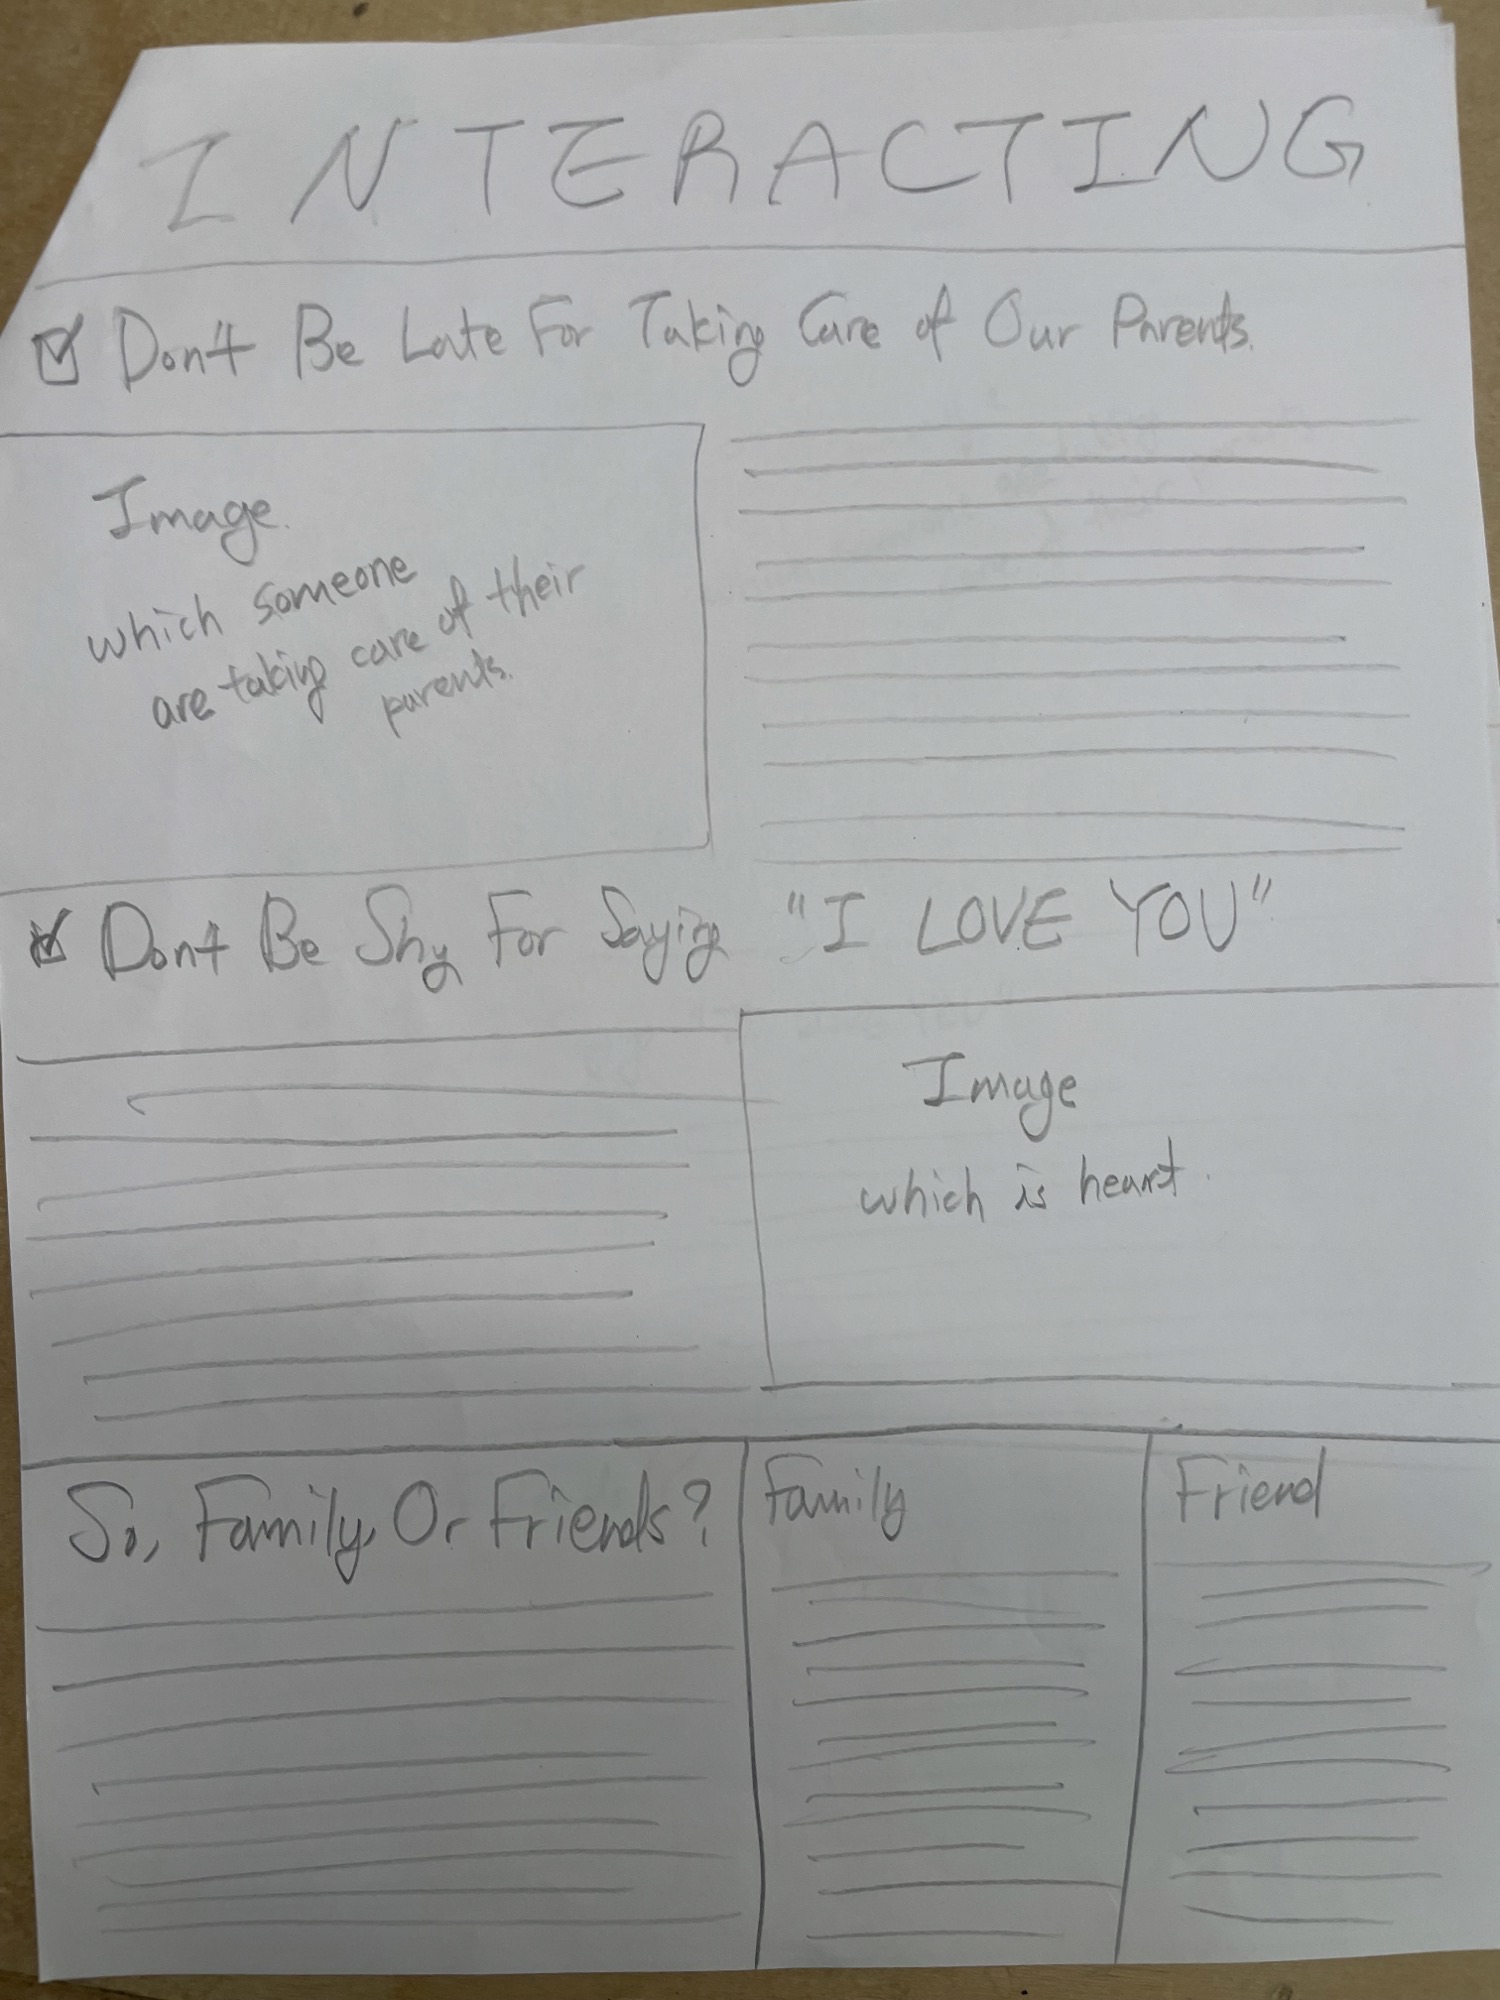 INTERACTING
Don't Be Late For Taking Care of Our Parents.
Image.
which someone
are taking care of their
parents.
Don't Be Shy For Saying "I LOVE YOU"
Image
which is heart.
So, Family, Or Friends?
Family
Friend